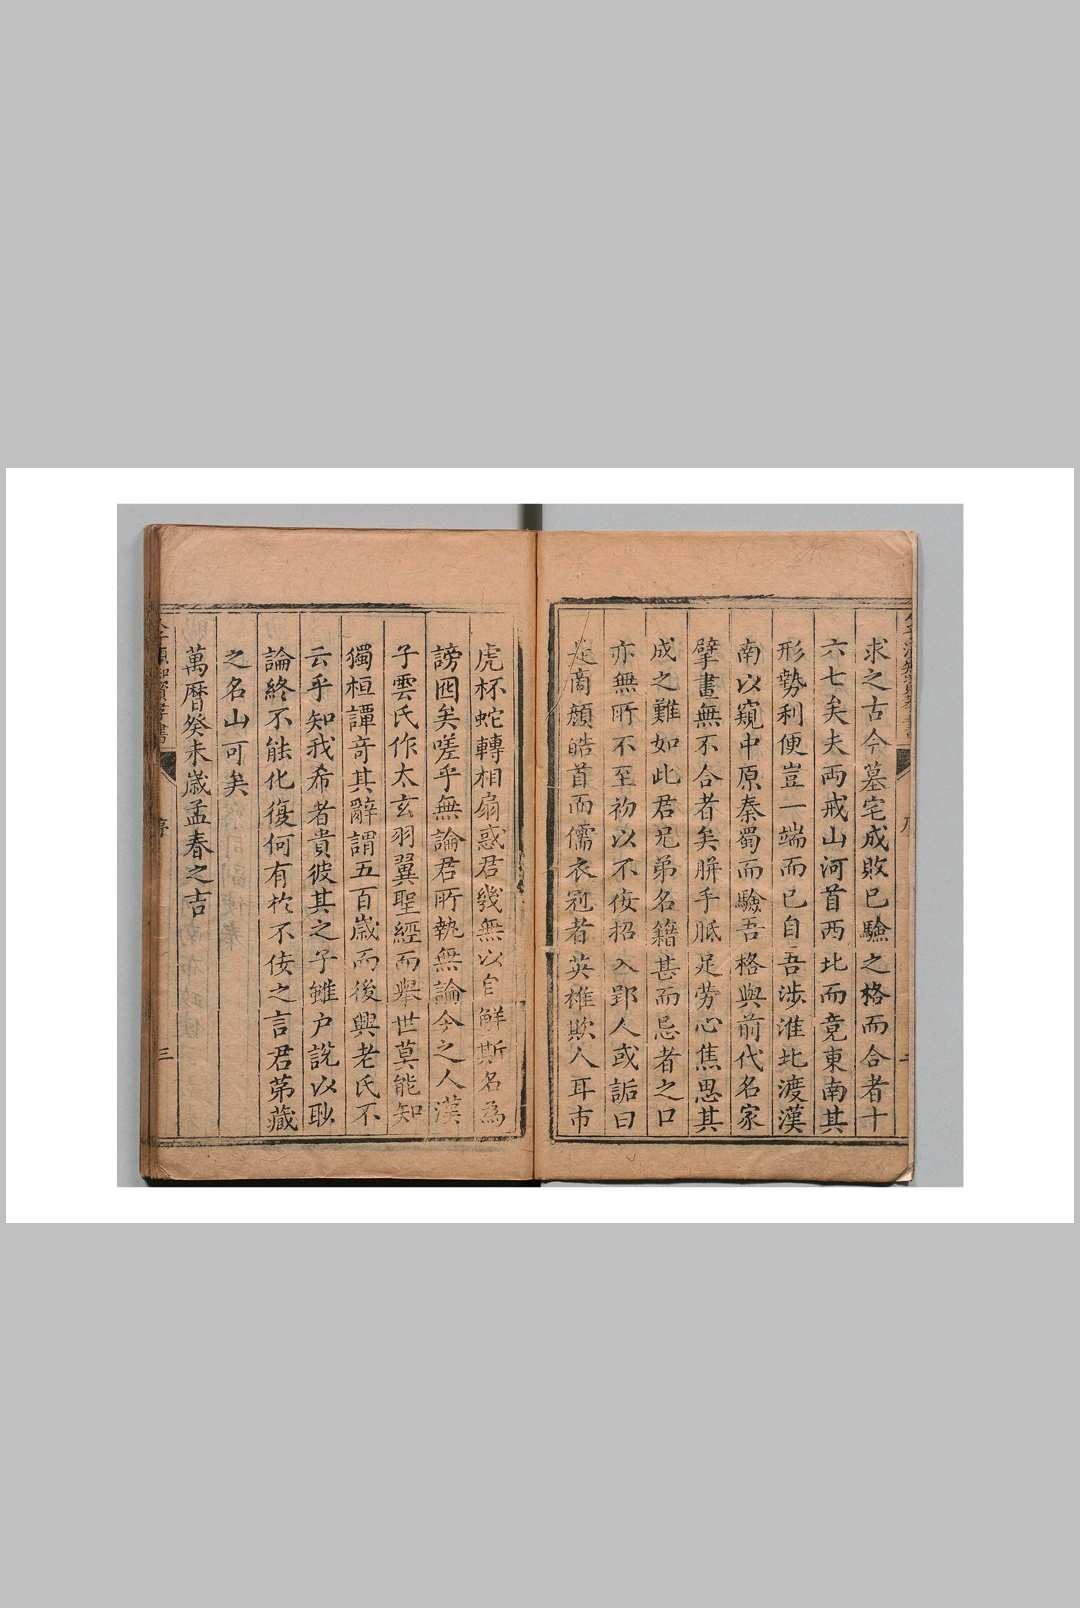 求之古今墓宅成敗已驗之格而合者十
六七矣夫兩戒山河首西北而竟東南其
形勢利便豈一端而已自吾涉淮北渡漢
南以窺中原秦蜀而驗吾格與前代名家
擘畫無不合者矣胼手胝足勞心焦思其
成之難如此君兄弟名籍甚而忌者之口
亦無所不至初以不佞招入郢人或詬曰
是商顏皓首而儒衣冠者英雄欺人耳市
虎杯蛇轉相扇惑君幾無以自解斯名為
謗囮矣嗟乎無論君所執無論今之人漢
子雲氏作太玄羽翼聖經而舉世莫能知
獨桓譚奇其辭謂五百歲而後興老氏不
云乎知我希者貴彼其之子雖户說以眇
論終不能化復何有於不佞之言君第藏
之名山可矣
萬曆癸未歲孟春之吉
序
三